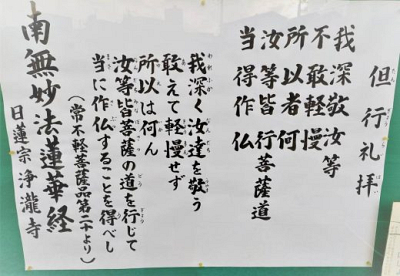 但行礼拝
我深敬汝等
不敢軽慢
所以者何
汝等皆行菩薩道
当得作仏
我深く汝達を敬う
敢えて軽慢せず
所以は何ん
汝等皆菩薩の道を行じて
当に作仏することを得べし
(常不軽菩薩品第二十より)
南無妙法蓮華経
日蓮宗 浄瀧寺